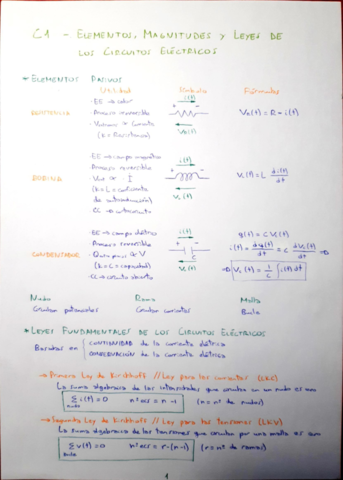 C1 - ELEMENTOS, MAGNITUDES Y LEYES DE
LOS CIRCUITOS ELÉCTRICOS
ELEMENTOS PASIVOS
Utilidad Símbolo Fórmulas
RESISTENCIA
· EE → calor
· Proceso irreversible
· Voltaje ∝ Corriente
(K = Resistencia)
i(t)
+ -
VR(t)
VR(t) = R · i(t)
BOBINA
EE → campo magnético
Proceso reversible
(K = L = coeficiente
de autoinducción)
CC → cortocircuito
i(t)
+ -
VL(t)
VL(t) = L di(t)/dt
CONDENSADOR
· EE → campo eléctrico
Proceso reversible
∝ V
(K = C = capacidad)
CC → circuito abierto
i(t)
+ -
C
Vc(t)
q(t) = C Vc(t)
i(t) = dq(t)/dt = C dVc(t)/dt ⇒
⇒ Vc(t) = 1/C ∫ i(t) dt
Nudo Rama Malla
Comparten potenciales Comparten corrientes Bucle
LEYES FUNDAMENTALES DE LOS CIRCUITOS ELÉCTRICOS
Basadas en CONTINUIDAD de la corriente eléctrica
CONSERVACIÓN de la corriente eléctrica
→ Primera Ley de Kirchhoff // Ley para las corrientes (LKC)
La suma algebraica de las intensidades que circulan en un nudo es cero
Σ i(t) = 0 nº ecs = n - 1 (n = nº de nudos)
nudo
→ Segunda Ley de Kirchhoff // Ley para las tensiones (LKV)
La suma algebraica de las tensiones que circulan por una malla es cero
Σ v(t) = 0 nº ecs = r - (n - 1) (r = nº de ramas)
malla
1